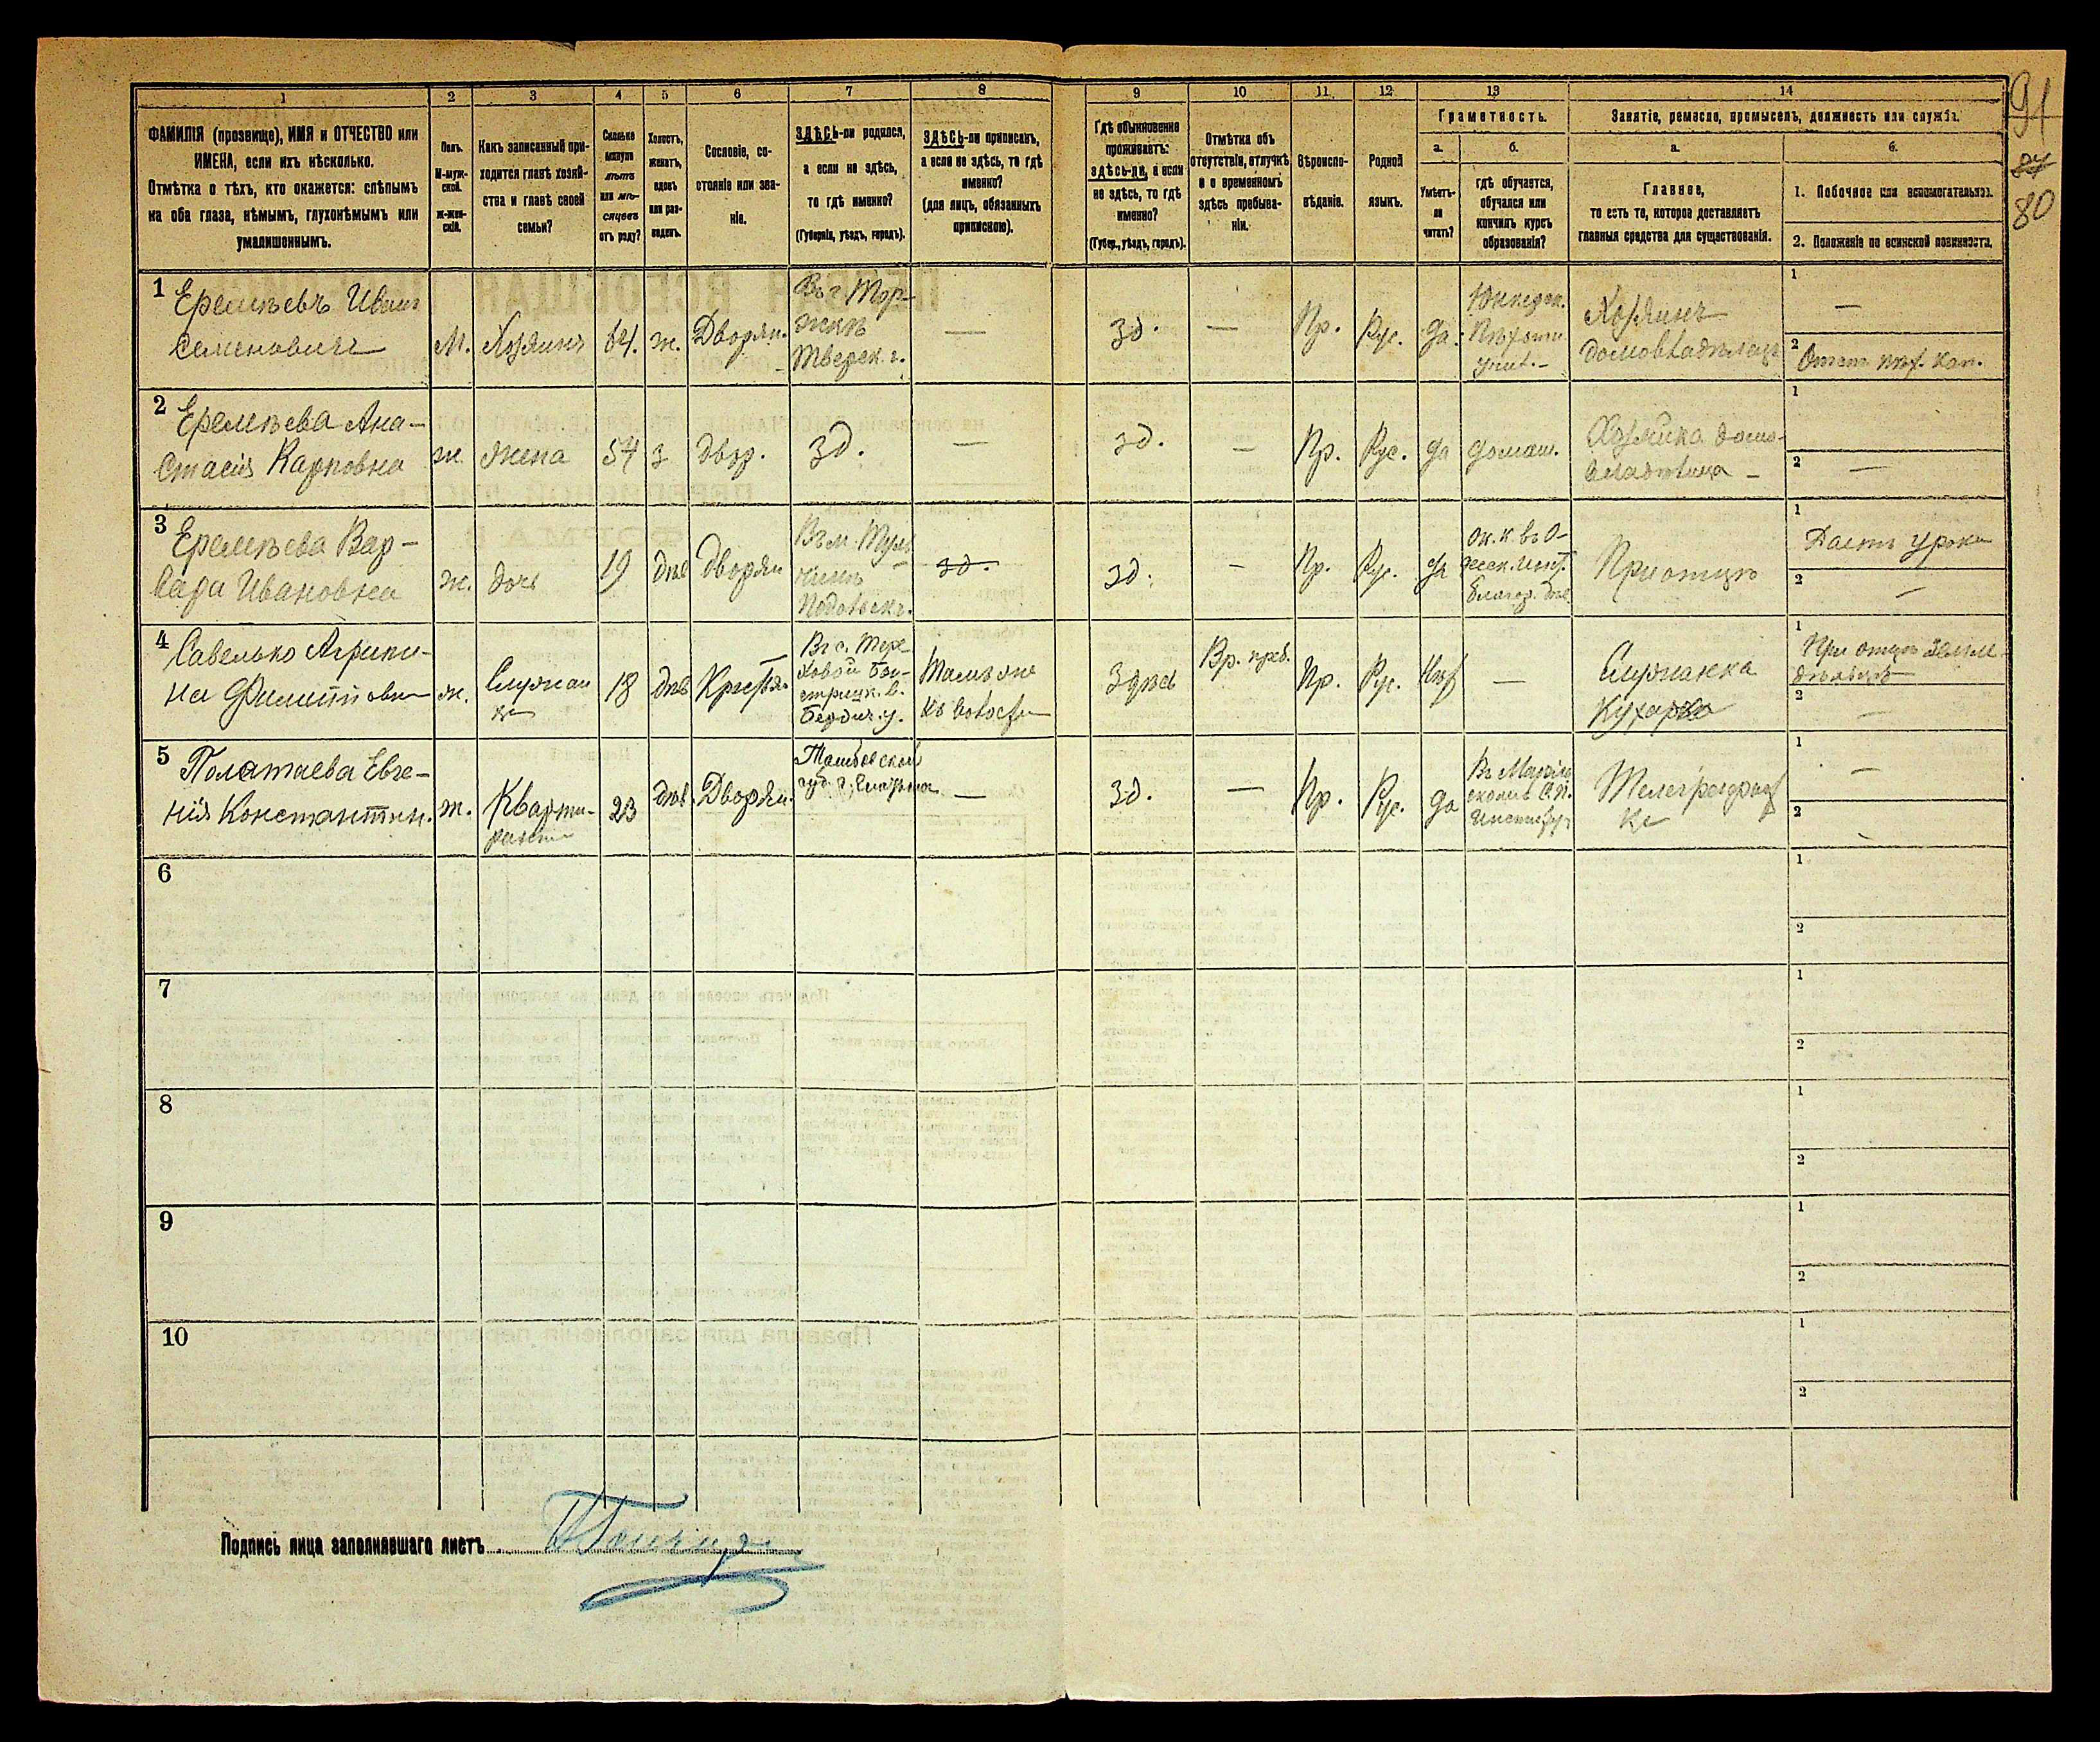 91
84
80
1 2 3 4 5 6 7 8 9 10 11 12 13 14
ФАМИЛІЯ (прозвище), ИМЯ и ОТЧЕСТВО или
ИМЕНА, если ихъ нѣсколько.
Отмѣтка о тѣхъ, кто окажется: слѣпымъ
на оба глаза, нѣмымъ, глухонѣмымъ или
умалишоннымъ.
Полъ.
М-муж-
ской.
Ж-жен-
скій.
Какъ записанный при-
ходится главѣ хозяй-
ства и главѣ своей
семьи?
Сколько
минуло
лѣтъ
или мѣ-
сяцевъ
отъ роду?
Холостъ,
женатъ,
вдовъ
или раз-
веденъ.
Сословіе, со-
стояніе или зва-
ніе.
ЗДѢСЬ-ли родился,
а если не здѣсь,
то гдѣ именно?
(Губернія, уѣздъ, городъ).
ЗДѢСЬ-ли приписанъ,
а если не здѣсь, то гдѣ
именно?
(для лицъ, обязанныхъ
припискою).
Гдѣ обыкновенно
проживаетъ:
здѣсь-ли, а если
не здѣсь, то гдѣ
именно?
(Губер., уѣздъ, городъ).
Отмѣтка объ
отсутствіи, отлучкѣ
и о временномъ
здѣсь пребыва-
ніи.
Вѣроиспо-
вѣданіе.
Родной
языкъ.
Грамотность.
а.
Умѣетъ-
ли
читать?
б.
гдѣ обучается,
обучался или
кончилъ курсъ
образованія?
Занятіе, ремесло, промыселъ, должность или служба.
а.
Главное,
то есть то, которое доставляетъ
главныя средства для существованія.
б.
1. Побочное или вспомогательное.
2. Положеніе по воинской повинности.
1 Еремѣевъ Иванъ
Семеновичъ
М.
Хозяинъ
64.
ж.
Дворян.
Въ г. Тор-
жкѣ
Тверск. г.
—
Зд.
—
Пр.
Рус.
да.
Юнкерск.
Пѣхотн.
учил.
Хозяинъ
домовладѣлецъ
1
—
2
Отст. пѣх. кап.
2 Еремѣева Ана-
стасія Карповна
ж.
жена
54
з
двор.
Зд.
—
зд.
—
Пр.
Рус.
да
домаш.
Хозяйка домо-
владѣлица
1
2
—
3 Еремѣева Вар-
вара Ивановна
ж.
дочь
19
дѣв
дворян
Въ м. Туль
чинѣ
Подольск.
зд.
зд.
—
Пр.
Рус.
да
Ок. к. въ О-
десск. Инст.
Благор. дѣв
При отцѣ
1
Даетъ уроки
2
—
4 Савелько Агрипи-
на Филипповн
ж.
Служан
ка
18
дѣв
Крестья.
Въ с. Терехо
ховой Бы-
стрицк. в.
Бердич. у.
Тамъ же
къ волости
Здѣсь
Вр. преб.
Пр.
Рус.
Нѣт
—
Служанка
Кухарка
1
При отцѣ земле-
дѣліемъ
2
—
5 Полатаева Евге-
нія Константин.
ж.
Кварти-
рантк
23
дѣв.
Дворян.
Тамбовской
губ. г. Елатьма
—
Зд.
—
Пр.
Рус.
да
Въ Маріин
скомъ
Институт
Телеграфист
ка
1
—
2
6
1
2
7
1
2
8
1
2
9
1
2
10
1
2
Подпись лица заполнявшаго листъ